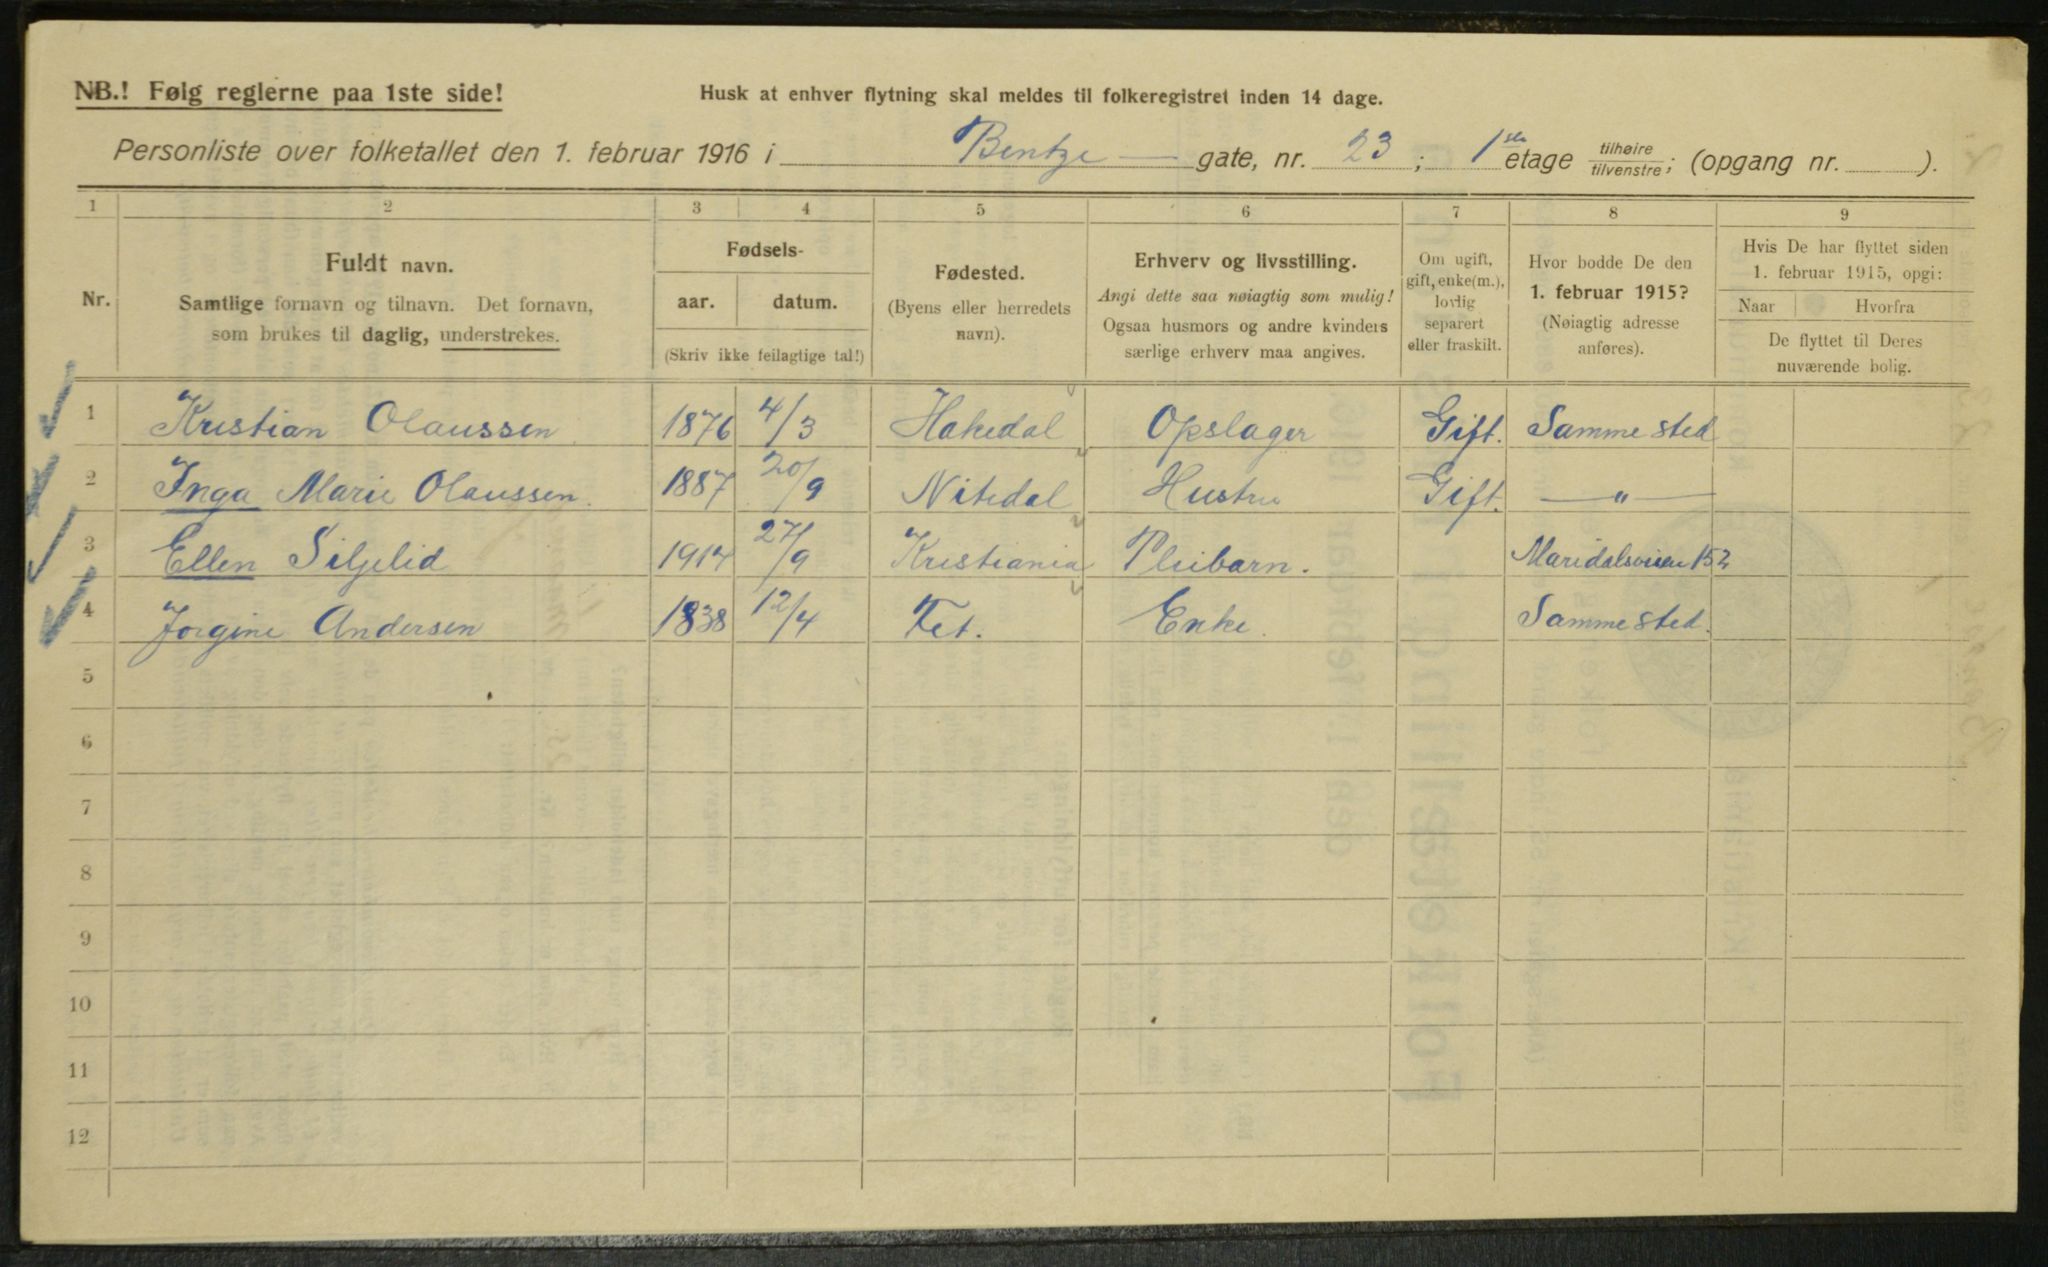 NB.! Følg reglerne paa 1ste side!
Husk at enhver flytning skal meldes til folkeregistret inden 14 dage.
Personliste over folketallet den 1. februar 1916 i Bentze gate, nr. 23; 1ste etage tilhøire/tilvenstre; (opgang nr. ).
1 2 3 4 5 6 7 8 9
Nr.
Fuldt navn.
Samtlige fornavn og tilnavn. Det fornavn,
som brukes til daglig, understrekes.
Fødsels-
aar. datum.
(Skriv ikke feilagtige tal!)
Fødested.
(Byens eller herredets
navn).
Erhverv og livsstilling.
Angi dette saa nøiagtig som mulig!
Ogsaa husmors og andre kvinders
særlige erhverv maa angives.
Om ugift,
gift, enke(m.),
lovlig
separert
eller fraskilt.
Hvor bodde De den
1. februar 1915?
(Nøiagtig adresse
anføres).
Hvis De har flyttet siden
1. februar 1915, opgi:
Naar Hvorfra
De flyttet til Deres
nuværende bolig.
1 Kristian Olaussen 1876 4/3 Hakedal Opslager Gift. Samme sted
2 Inga Marie Olaussen. 1887 20/9 Nitedal Hustru Gift. — " —
3 Ellen Siljelid 1914 27/9 Kristiania Pleibarn. Maridalsveien 152
4 Jorgine Andersen 1838 12/4 Fet. Enke. Samme sted.
5
6
7
8
9
10
11
12